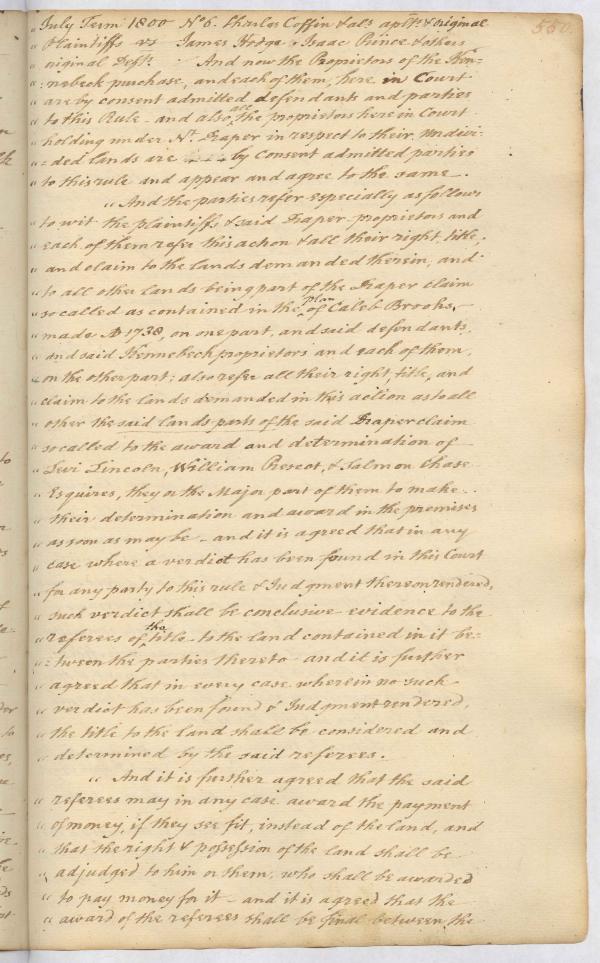 550.
"July Term 1800 No 6. Charles Coffin & als aplts & original
" Plaintiffs vs James Hodge & Isaac Prince & others
" original Defts And now the Proprietors of the Ken-
" =nebeck purchase, and each of them, here in Court
" are by consent admitted defendants and parties
" to this Rule - and also all the proprietors here in Court
" holding under Nt. Draper in respect to their undivi-
" =ded lands are by consent admitted parties
" to this rule and appear and agree to the same -.
" And the parties refer especially as follows
" to wit the plaintiffs & said Draper proprietors and
" each of them refer this action & all their right, title,
" and claim to the lands demanded therein, and
" to all other lands being part of the Draper claim
" so called as contained in the plan of Caleb Brooks,
" made AD 1738, on one part, and said defendants,
" and said Kennebeck proprietors and each of them,
" on the other part; also refer all their right, title, and
" claim to the lands demanded in this action as to all
" other the said lands parts of the said Draper claim
" so called to the award and determination of
" Levi Lincoln, William Prescot, & Salmon Chase
" Esquires, they or the Major part of them to make
" their determination and award in the premises
" as soon as may be - and it is agreed that in any
" case where a verdict has been found in this Court
" for any party to this rule & Judgment thereon rendered,
" such verdict shall be conclusive evidence to the
" referees of the title to the land contained in it be=
" =tween the parties thereto - and it is further
" agreed that in every case wherein no such
" verdict has been found & Judgment rendered,
" the title to the land shall be considered and
" determined by the said referees.
" And it is further agreed that the said
" referees may in any case award the payment
" of money, if they see fit, instead of the land, and
" that the right & possession of the land shall be
" adjudged to him or them, who shall be awarded
" to pay money for it - and it is agreed that the
" award of the referees shall be final between the